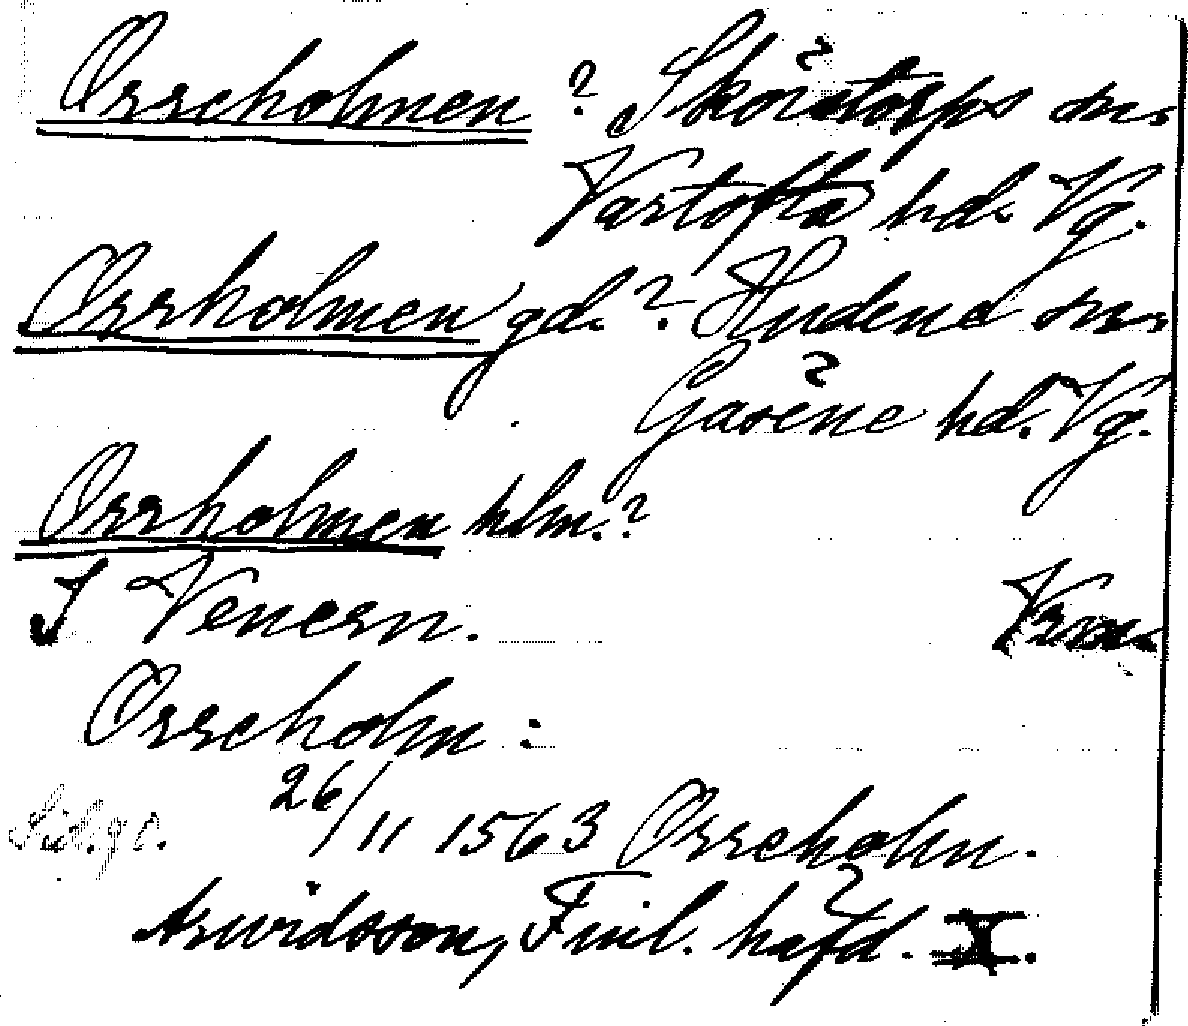 Orreholmen ? Skörstorps sn.
Vartofta hd. Vg.
Orrholmen gd. ? Hudene sn.
Gäsene hd. Vg.
Orrholmen hlm. ?
I Venern. Vrml.
Orreholm :
26/11 1563 Orreholm.
Arwidsson, Finl. häfd. X.